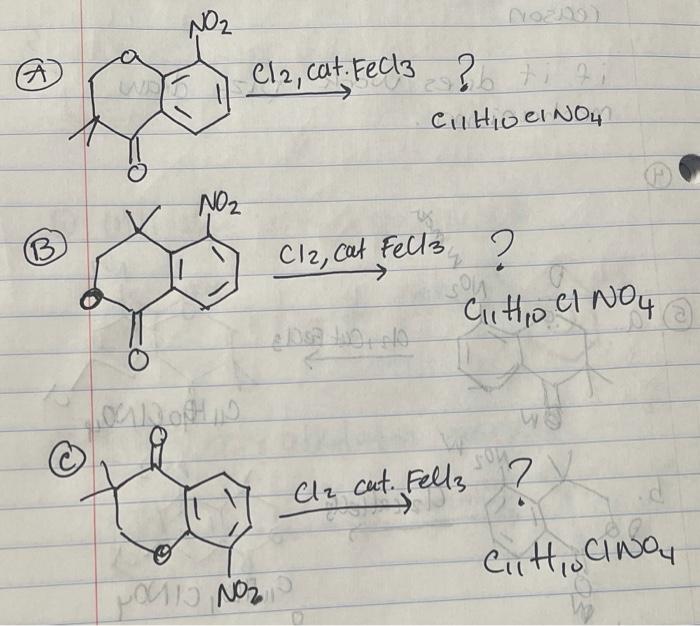 NO2
O
A
Cl2, cat. FeCl3 ?
C11H10ClNO4
O
NO2
B
Cl2, cat FeCl3 ?
O
C11H10ClNO4
O
O
C
Cl2 cat. FeCl3 ?
O
C11H10ClNO4
NO2